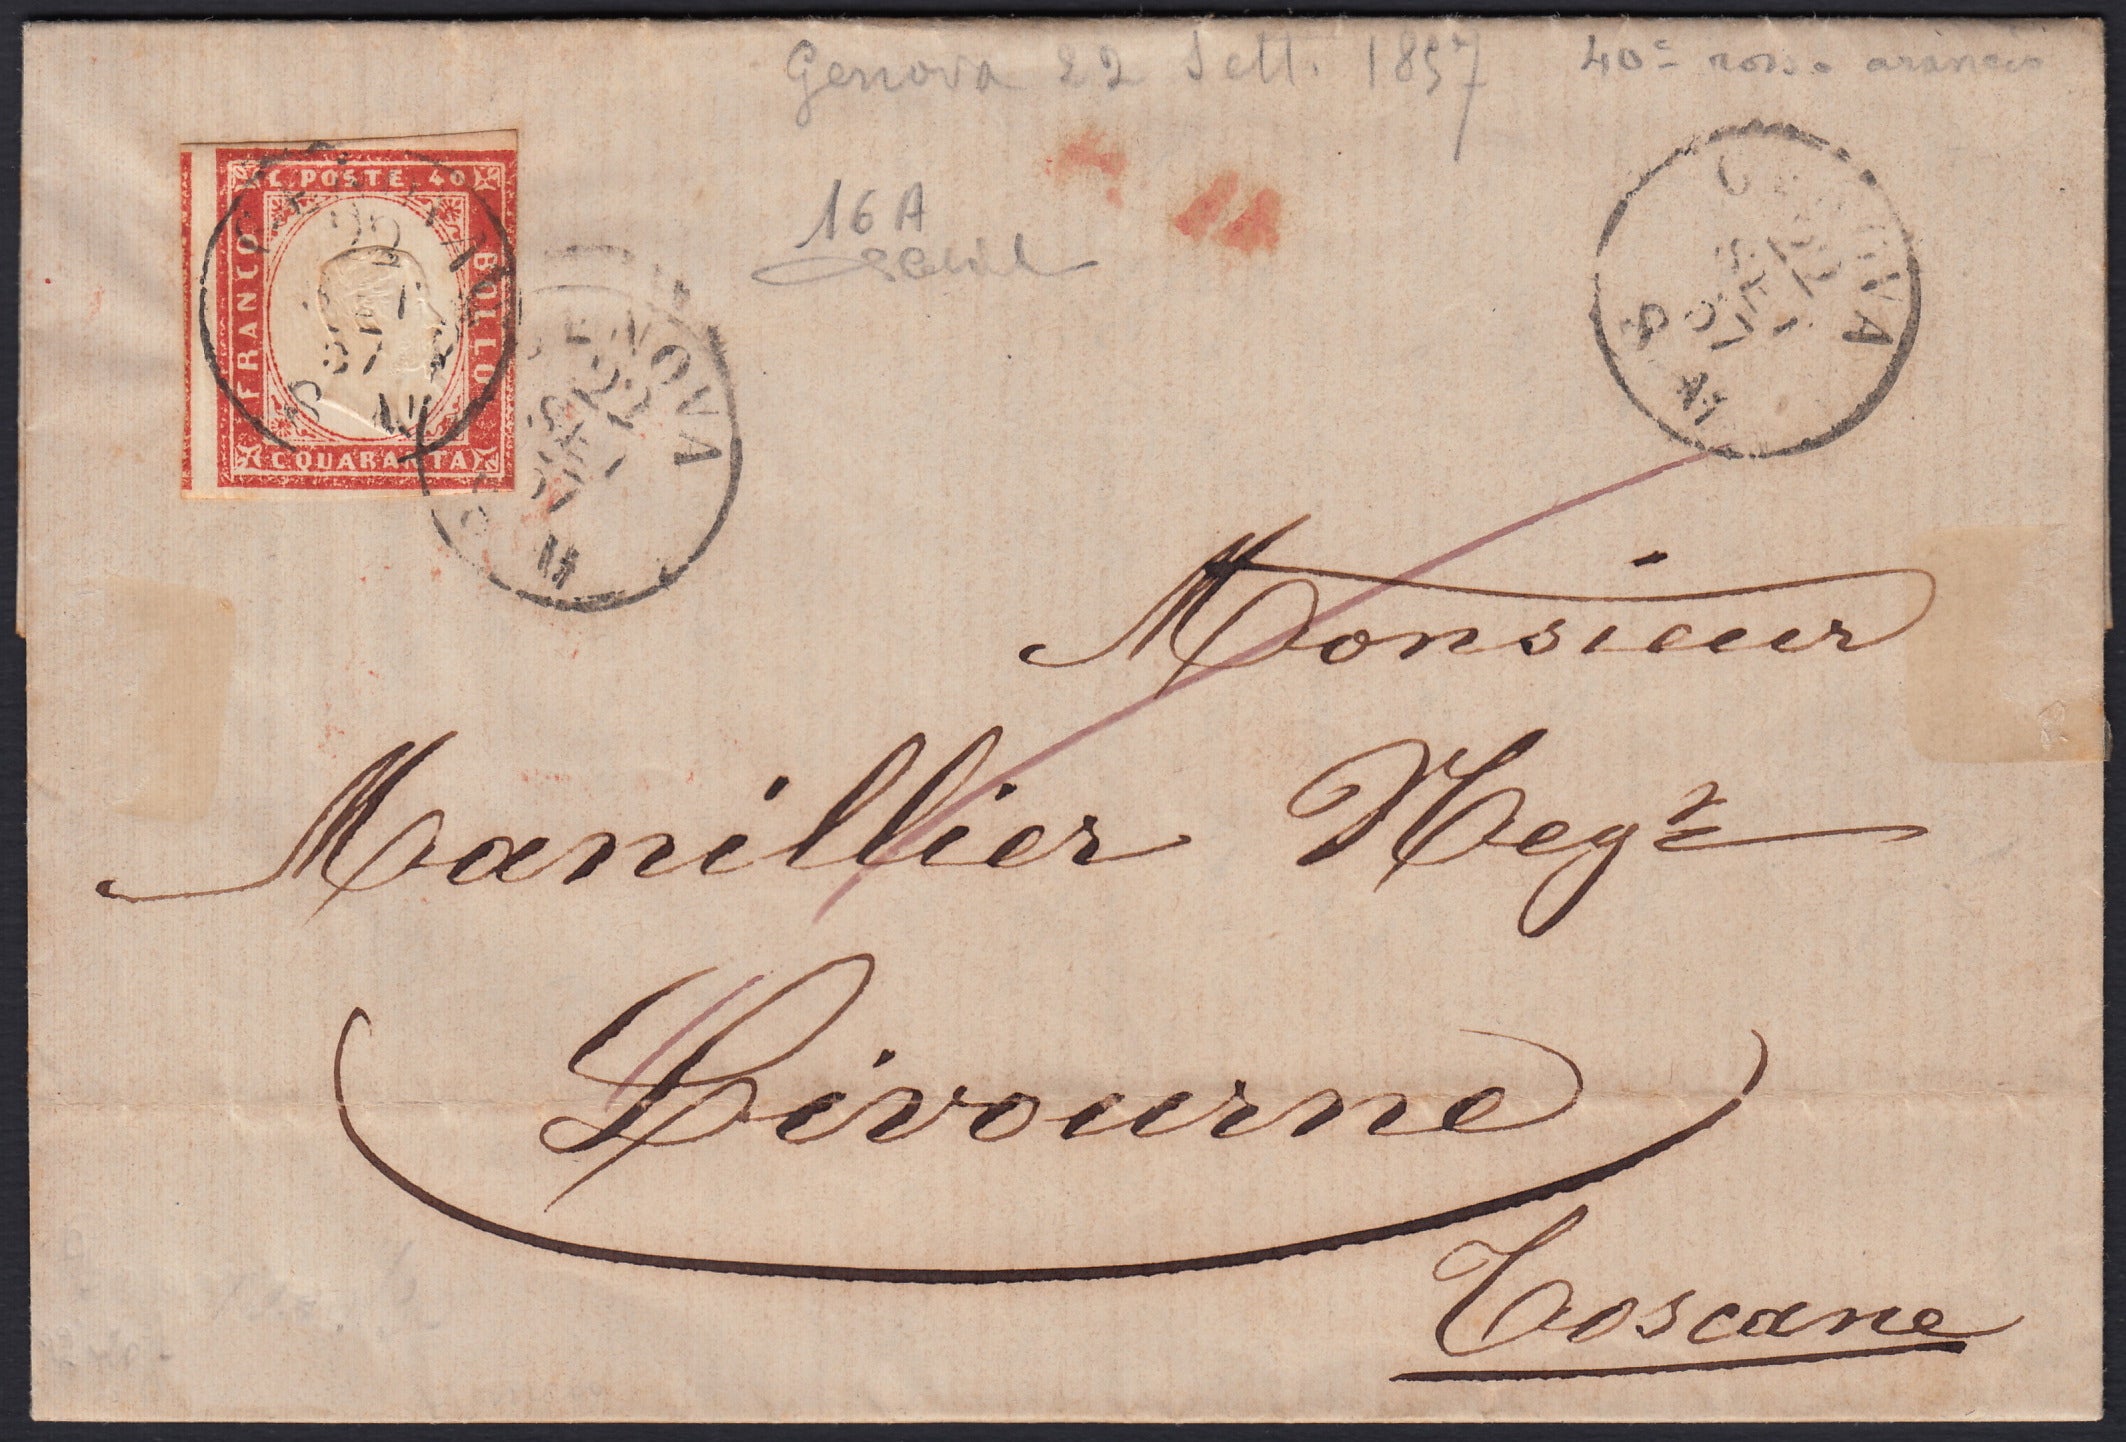 Genova 22 Sett. 1857
40c rosso arancio
16A
C. POSTE. 40
FRANCO
BOLLO
C QUARANTA
GENOVA
22
SET
57
GENOVA
22
SET
57
GENOVA
22
SET
57
Monsieur
Manillier Negt
Livourne
Toscane